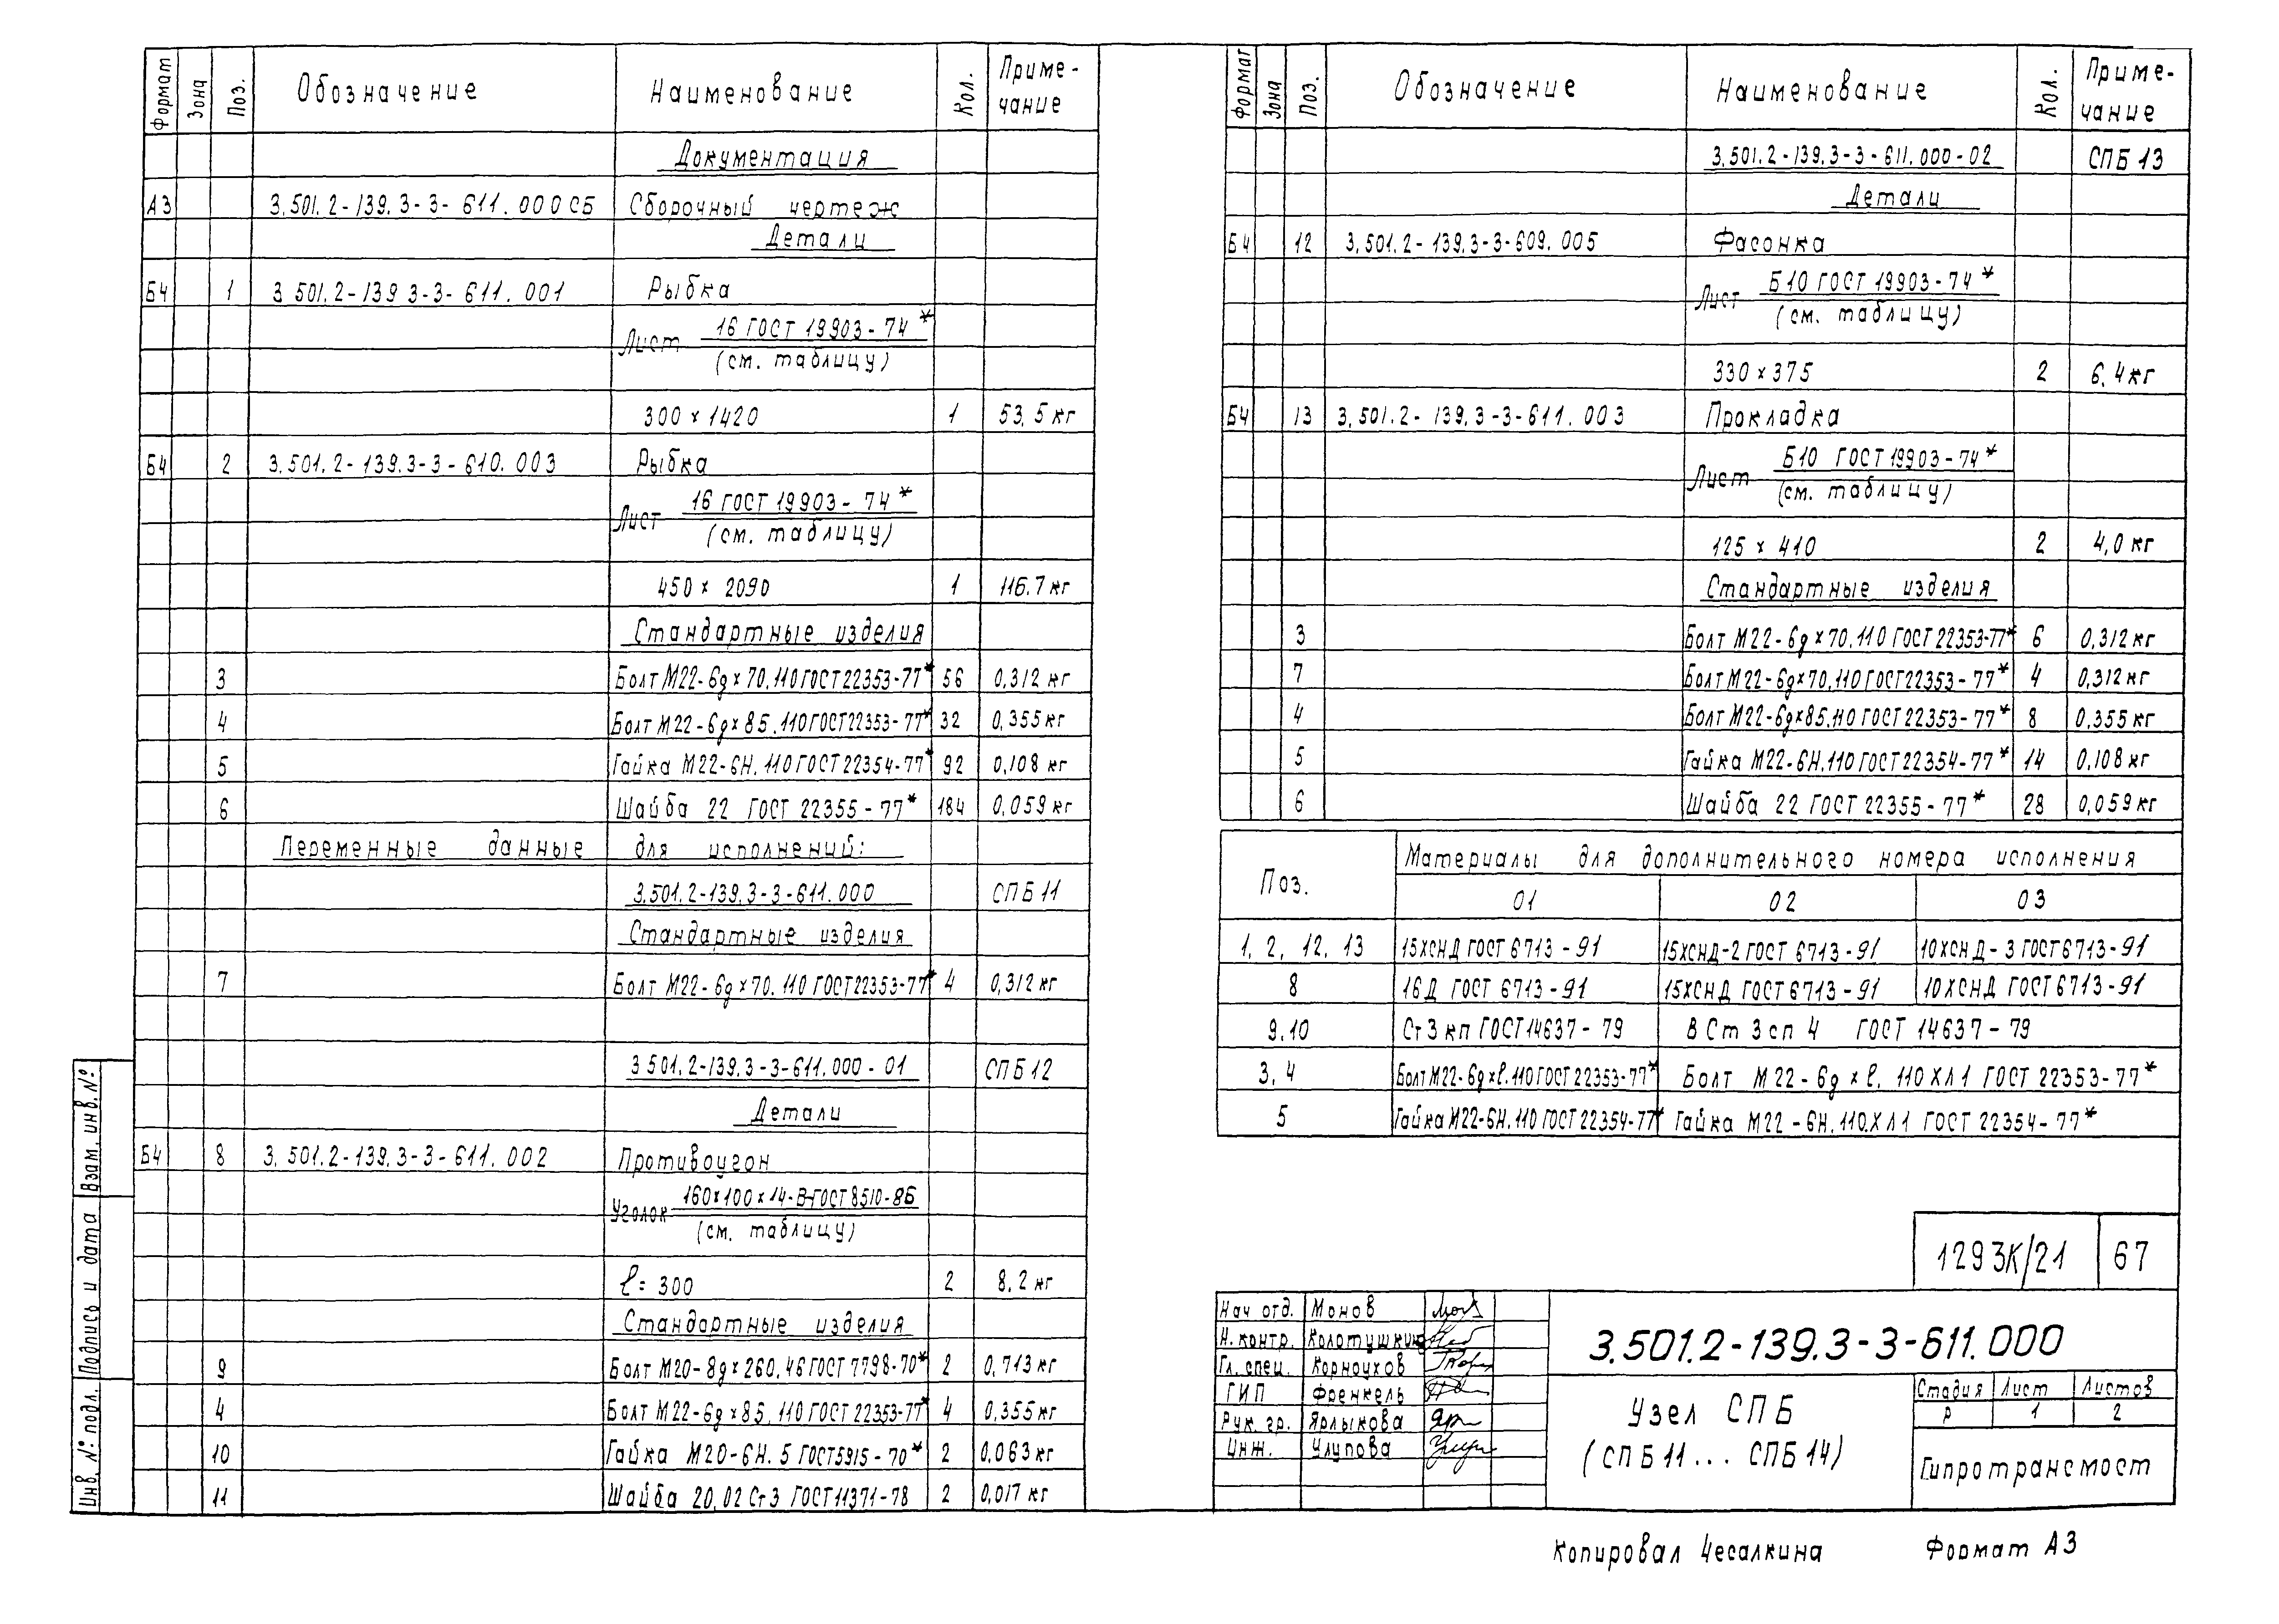 Формат Зона Поз. Обозначение Наименование Кол. Приме-чание
Документация
А3 3.501.2-139.3-3-611.000СБ Сборочный чертеж
Детали
Б4 1 3 501.2-139 3-3-611.001 Рыбка
Лист 16 ГОСТ 19903-74*
(см. таблицу)
300×1420 1 53,5 кг
Б4 2 3.501.2-139.3-3-610.003 Рыбка
Лист 16 ГОСТ 19903-74*
(см. таблицу)
450×2090 1 116.7 кг
Стандартные изделия
3 Болт М22-6g×70.110 ГОСТ 22353-77* 56 0,312 кг
4 Болт М22-6g×85.110 ГОСТ 22353-77* 32 0,355 кг
5 Гайка М22-6Н.110 ГОСТ 22354-77* 92 0,108 кг
6 Шайба 22 ГОСТ 22355-77* 184 0,059 кг
Переменные данные для исполнений:
3.501.2-139.3-3-611.000 СПБ 11
Стандартные изделия
7 Болт М22-6g×70.110 ГОСТ 22353-77* 4 0,312 кг
3 501.2-139.3-3-611.000-01 СПБ 12
Детали
Б4 8 3.501.2-139.3-3-611.002 Противоугон
Уголок 160×100×14-В-ГОСТ 8510-86
(см. таблицу)
ℓ=300 2 8,2 кг
Стандартные изделия
9 Болт М20-8g×260.46 ГОСТ 7798-70* 2 0,713 кг
4 Болт М22-6g×85.110 ГОСТ 22353-77* 4 0,355 кг
10 Гайка М20-6Н.5 ГОСТ 5915-70* 2 0,063 кг
11 Шайба 20.02 Ст3 ГОСТ 11371-78 2 0,017 кг
Взам. инв. №
Подпись и дата
Инв. № подл.
Формат Зона Поз. Обозначение Наименование Кол. Приме-чание
3.501.2-139.3-3-611.000-02 СПБ 13
Детали
Б4 12 3.501.2-139.3-3-609.005 Фасонка
Лист Б10 ГОСТ 19903-74*
(см. таблицу)
330×375 2 6,4 кг
Б4 13 3.501.2-139.3-3-611.003 Прокладка
Лист Б10 ГОСТ 19903-74*
(см. таблицу)
125×410 2 4,0 кг
Стандартные изделия
3 Болт М22-6g×70.110 ГОСТ 22353-77* 6 0,312 кг
7 Болт М22-6g×70.110 ГОСТ 22353-77* 4 0,312 кг
4 Болт М22-6g×85.110 ГОСТ 22353-77* 8 0,355 кг
5 Гайка М22-6Н.110 ГОСТ 22354-77* 14 0,108 кг
6 Шайба 22 ГОСТ 22355-77* 28 0,059 кг
Поз. Материалы для дополнительного номера исполнения
01 02 03
1, 2, 12, 13 15ХСНД ГОСТ 6713-91 15ХСНД-2 ГОСТ 6713-91 10ХСНД-3 ГОСТ 6713-91
8 16Д ГОСТ 6713-91 15ХСНД ГОСТ 6713-91 10ХСНД ГОСТ 6713-91
9.10 Ст3кп ГОСТ 14637-79 ВСт3сп4 ГОСТ 14637-79
3, 4 Болт М22-6g×ℓ.110 ГОСТ 22353-77* Болт М22-6g×ℓ.110ХЛ1 ГОСТ 22353-77*
5 Гайка М22-6Н.110 ГОСТ 22354-77* Гайка М22-6Н.110ХЛ1 ГОСТ 22354-77*
1293К/21 67
Нач отд. Монов
Н. контр. Колотушкин
Гл. спец. Корноухов
ГИП Френкель
Рук. гр. Ярлыкова
Инж. Улупова
3.501.2-139.3-3-611.000
Узел СПБ
(СПБ11... СПБ14)
Стадия Лист Листов
Р 1 2
Гипротрансмост
Копировал Чесалкина Формат А3